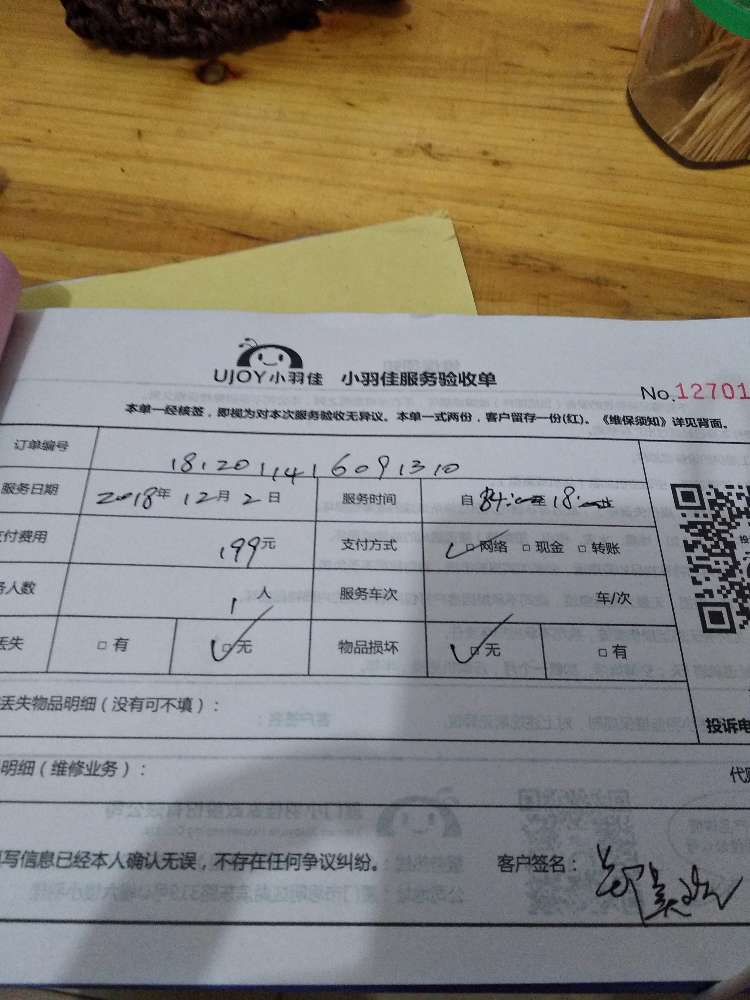 UJOY小羽佳 小羽佳服务验收单
No.12701
本单一经核签，即视为对本次服务验收无异议。本单一式两份，客户留存一份(红)。《维保须知》详见背面。
订单编号 1812011416091310
服务日期 2018年 12月 2日 服务时间 自 至 18:
付费用 199元 支付方式 □网络 □现金 □转账
人数 1人 服务车次 车/次
丢失 □有 □无 物品损坏 □无 □有
丢失物品明细（没有可不填）：
投诉电
明细（维修业务）：
写信息已经本人确认无误，不存在任何争议纠纷。 客户签名：